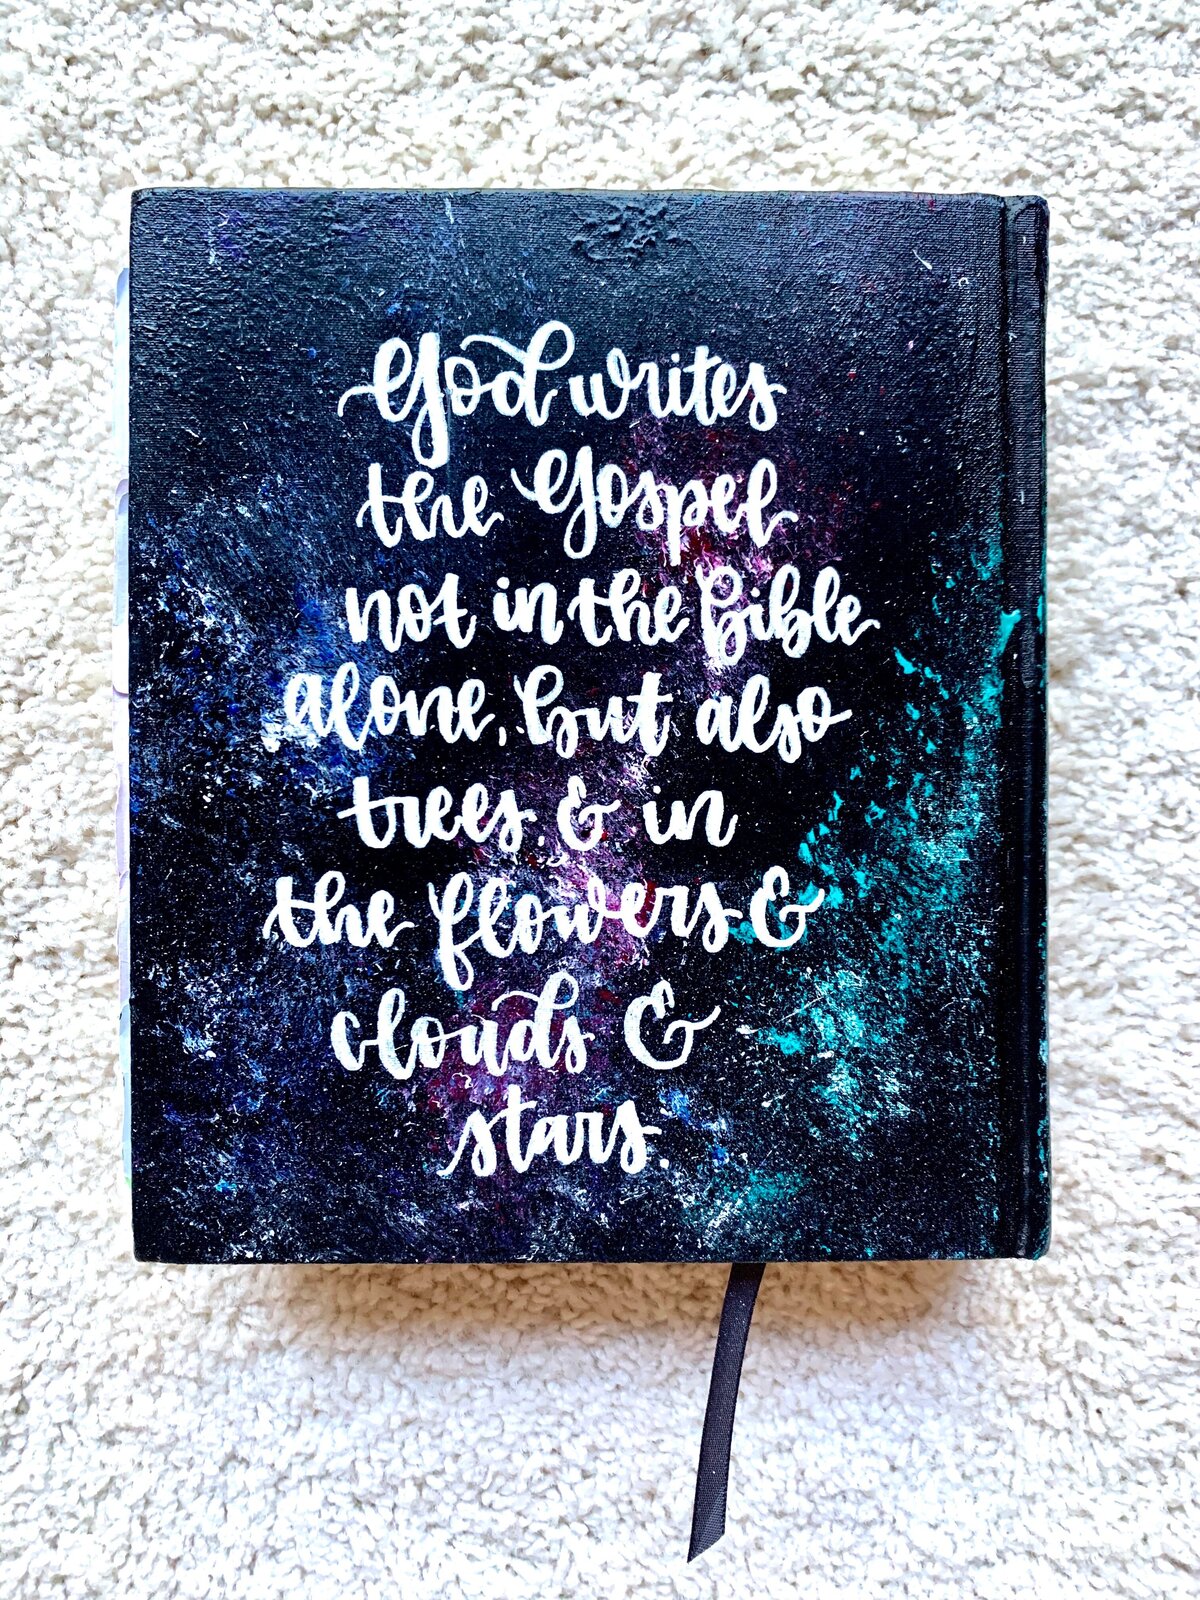 God writes
the Gospel
not in the Bible
alone, but also
trees, & in
the flowers &
clouds &
stars.